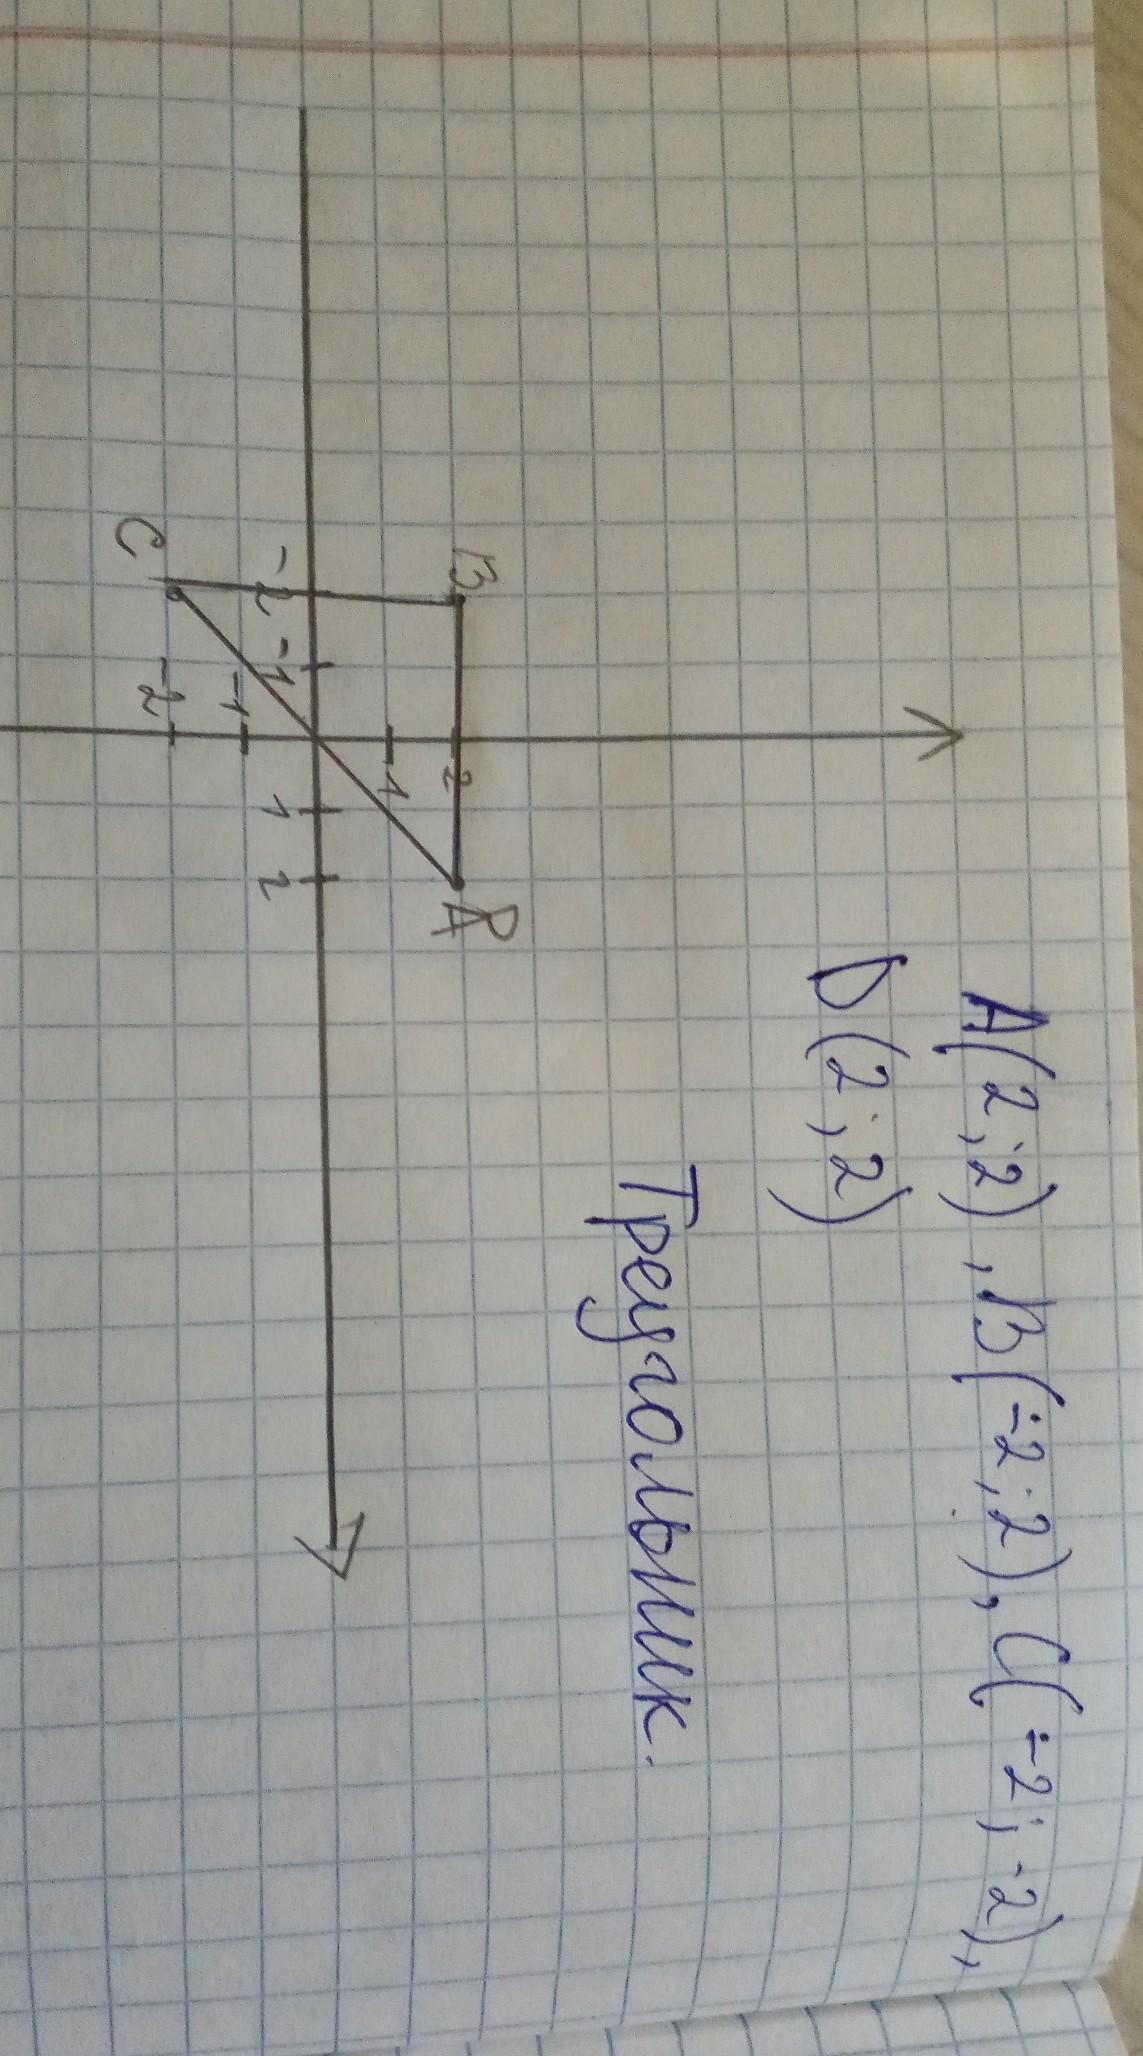 A(2;2), B(-2;2), C(-2;-2),
D(2;2)
Треугольник.
B
A
D
2
1
-2
-1
1
2
-1
-2
C